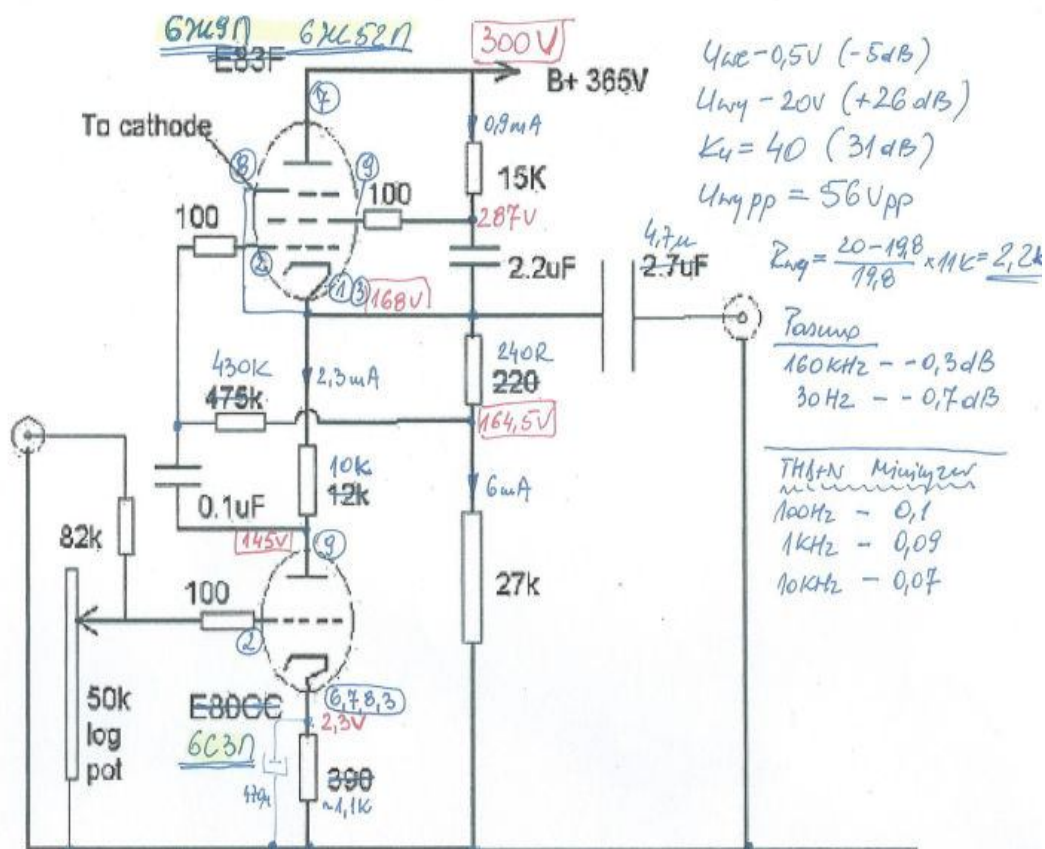 6Ж9П 6Ж52П
E83F
300V
B+ 365V
To cathode
7
8
9
0,9mA
15K
100
100
287V
2
2.2uF
4,7µ
2.7uF
1 3
168V
430K
475k
2,3mA
240R
220
164,5V
10K
12k
0.1uF
6mA
82k
145V
9
27k
100
2
50k
log
pot
E80CC
6С3П
6,7,8,3
2,3V
390
~1,1K
470µ
Uwe-0,5V (-5dB)
Uwy-20V (+26dB)
Ku=40 (31dB)
Uwy pp = 56Vpp
Rwy = 20-19,8 / 19,8 ×11K = 2,2k
Pasmo
160KHz - -0,3dB
30Hz - -0,7dB
THD+N
100Hz - 0,1
1KHz - 0,09
10KHz - 0,07